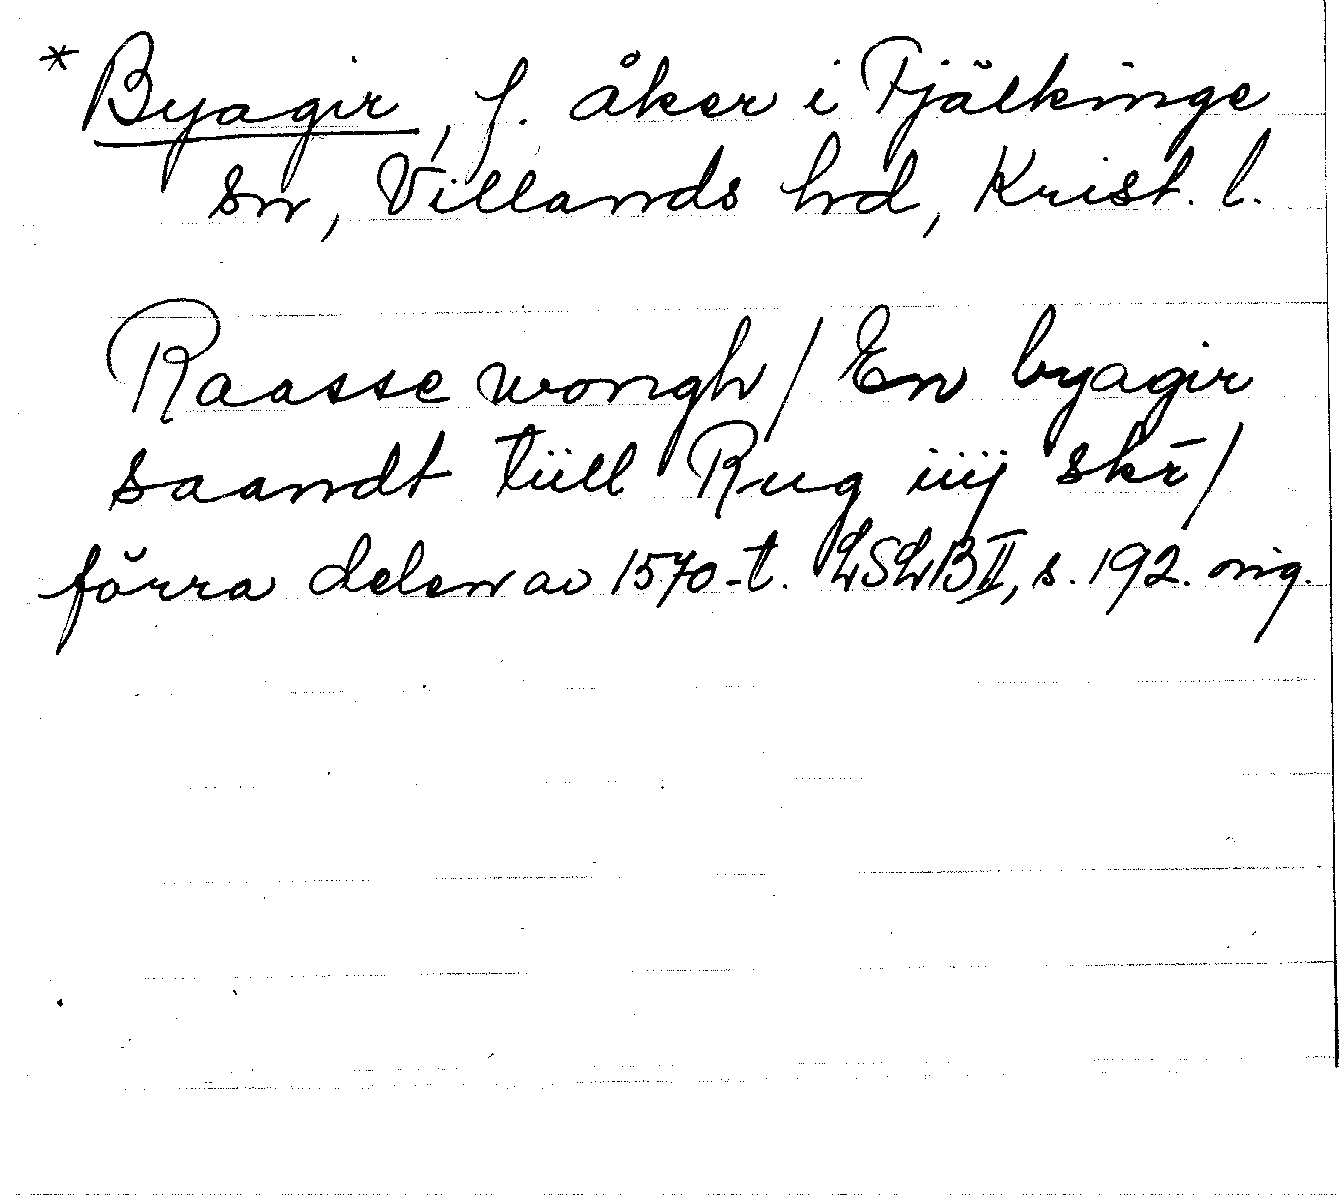 * Byagir, f. åker i Fjälkinge
sn, Villands hd, Krist. l.
Raasse wongh / En byagir
saandt tüll Rug iiij skr̄ /
förra delen av 1570-t. LSLB II, s. 192. orig.